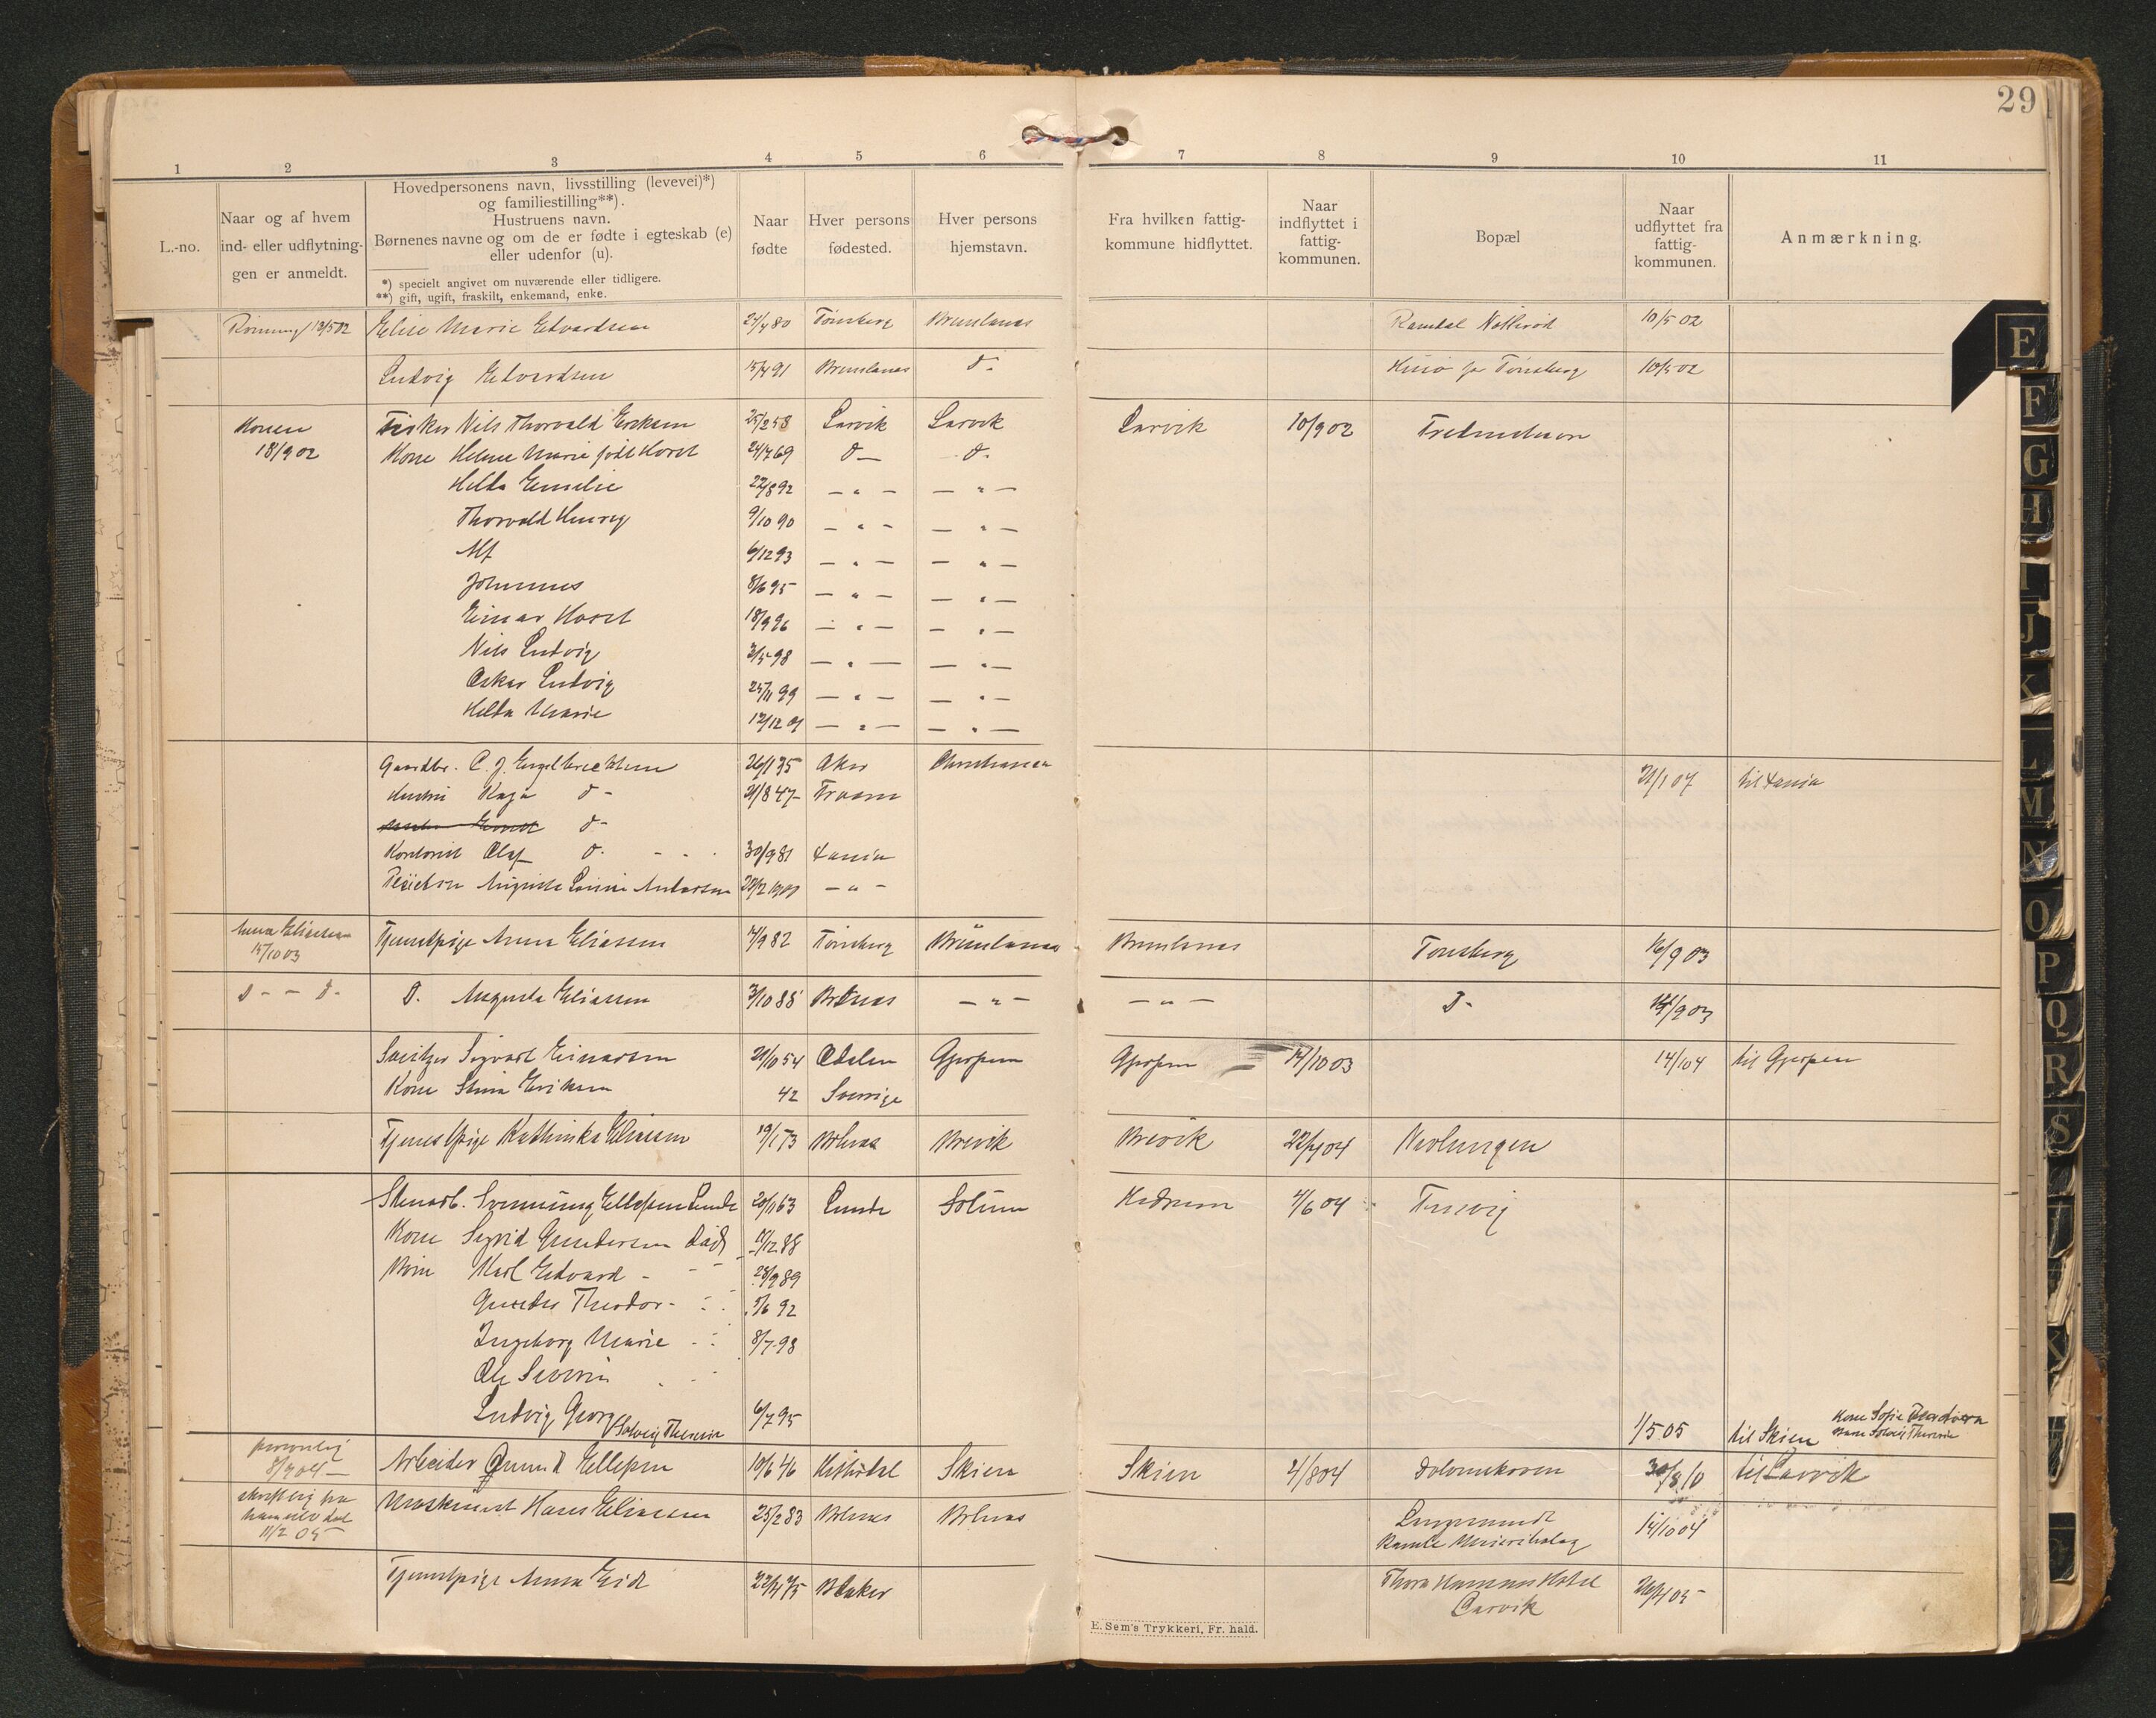 29
1 2 3 4 5 6 7 8 9 10 11
L.-no.
Naar og af hvem
ind- eller udflytnin-
gen er anmeldt.
Hovedpersonens navn, livsstilling (levevei)*)
og familiestilling**).
Hustruens navn.
Børnenes navne og om de er fødte i egteskab (e)
eller udenfor (u).
*) specielt angivet om nuværende eller tidligere.
**) gift, ugift, fraskilt, enkemand, enke.
Naar
fødte
Hver persons
fødested.
Hver persons
hjemstavn.
Fra hvilken fattig-
kommune hidflyttet.
Naar
indflyttet i
fattig-
kommunen.
Bopæl
Naar
udflyttet fra
fattig-
kommunen.
Anmærkning.
13/5 02 Elise Marie Edvardsen 27/4 80 Tønsberg Brunlanæs Ramdal Nøtterød 10/5 02
Ludvig Edvardsen 15/4 91 Brunlanæs d- Tønsberg 10/5 02
Konen Fisker Nils Thorvald Eriksen 25/2 58 Larvik Larvik Larvik 10/9 02 Fredriksværn
18/9 02 Kone Helene Marie født Horst 24/7 69 d- d-
Hilda Emilie 22/8 92 - " - - " -
Thorvald Henry 9/10 90 - " - - " -
Alf 6/12 93 - " - - " -
Johannes 8/6 95 - " - - " -
Einar Horst 18/9 96 - " - - " -
Nils Ludvig 3/5 98 - " - - " -
Oskar Ludvig 25/11 99 - " - - " -
Hilda Marie 12/12 01 - " - - " -
Gaardbr. C. J. Engelbrechtsen 26/1 35 Aker Christiania
Hustru Kaja d- 21/8 47 21/1 07 til Xania
d-
Kontorist Olaf d- 30/9 81 Xania
Pleiebarn Augusta Andersen - " -
Anna Eliassen Tjenestpige Anna Eliassen 4/9 82 Tønsberg Brunlanæs Brunlanæs Tønsberg 16/9 03
15/10 03
d - - d- d. Augusta Eliassen 3/10 85 - " - - " - d- 9 03
Sveitzer Sigvart Einarsen 21/10 54 Odalen Gjerpen Gjerpen 14/10 03 14/1 04 til Gjerpen
Kone Stina Eriksen 42 Sverrige
Tjenestpige Kathinka Eliassen 19/1 73 Brlnæs Brevik Brevik 22/4 04 Nevlungen
Stenarb. Svenning Ellefsen Lunde 20/1 63 Lunde Solum Hedrum 4/6 04
Kone Sigrid Gundersen 12 88
Børn Karl Edvard - 28/9 89
Gunder Theodor - 5/6 92
Ingeborg Marie - 8/7 98
Ole Severin
Ludvig Georg 6/7 95
Solveig Therese 1/5 05 til Skien Kone Sofie
Barn Solveig Therese
personlig Arbeider Ellefsen 10/6 46 Hitterdal Skien Skien 4/8 04 30/8 10 til Larvik
8/9 04
skriftlig fra Maskinist Hans Eliassen 25/2 83 Brlnæs Brlnæs Langesund 14/10 04
11/2 05 Bamle
Tjenestpige Anna Eid 22/4 75 Thora Hansens Hotel 26/4 05
Larvik
E. Sem's Trykkeri, Fr. hald.
E
F
G
H
I
J
K
L
M
N
O
P
Q
R
S